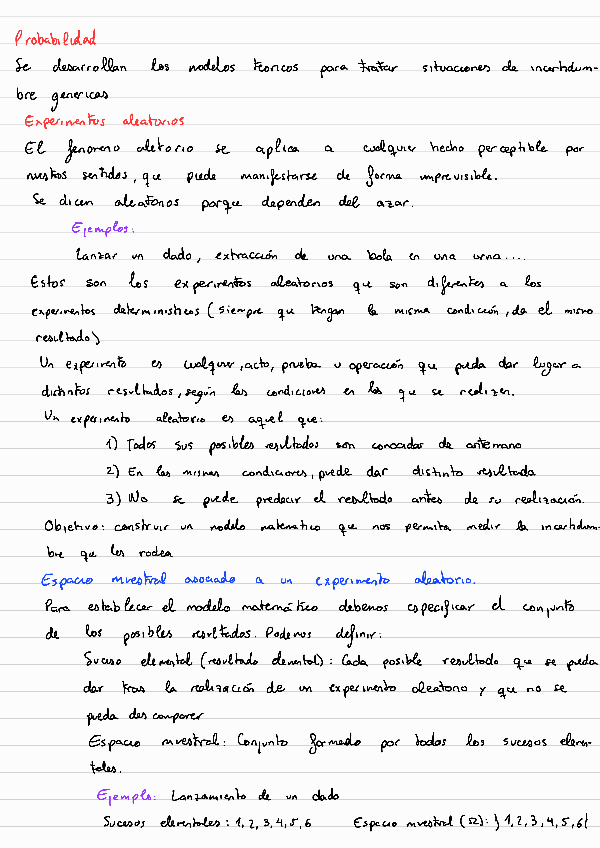 Probabilidad
Se desarrollan los modelos teoricos para tratar situaciones de incertidum-
bre genericas
Experimentos aleatorios
El fenomeno aletorio se aplica a cualquier hecho perceptible por
nuestros sentidos, que puede manifestarse de forma imprevisible.
Se dicen aleatorios porque dependen del azar.
Ejemplos:
Lanzar un dado, extracción de una bola en una urna....
Estos son los experimentos aleatorios que son diferentes a los
experimentos deterministicos (siempre que tengan la misma condición, da el mismo
resultado)
Un experimento es cualquier, acto, prueba u operación que pueda dar lugar a
distintos resultados, según las condiciones en las que se realizen.
Un experimento aleatorio es aquel que:
1) Todos sus posibles resultados son conocidos de antemano
2) En las mismas condiciones, puede dar distinto resultado
3) No se puede predecir el resultado antes de su realización.
Objetivo: construir un modelo matematico que nos permita medir la incertidum-
bre que les rodea
Espacio muestral asociado a un experimento aleatorio.
Para establecer el modelo matemático debemos especificar el conjunto
de los posibles resultados. Podemos definir:
Suceso elemental (resultado elemental): Cada posible resultado que se pueda
dar tras la realización de un experimento aleatorio y que no se
pueda descomponer
Espacio muestral: Conjunto formado por todos los sucesos elemen-
tales.
Ejemplo: Lanzamiento de un dado
Sucesos elementales: 1, 2, 3, 4, 5, 6 Espacio muestral (Ω): }1, 2, 3, 4, 5, 6{